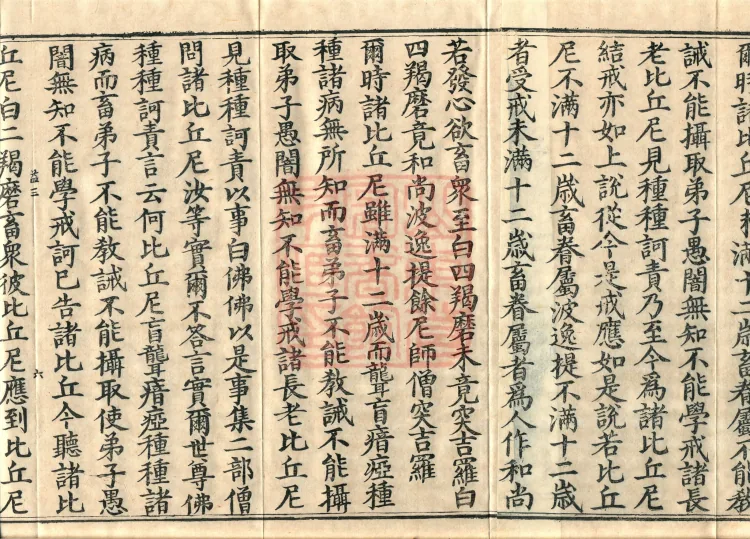 爾時諸比丘尼滿十二歲畜眷屬不能教
誡不能攝取弟子愚闇無知不能學戒諸長
老比丘尼見種種訶責乃至今為諸比丘尼
結戒亦如上說從今是戒應如是說若比丘
尼不滿十二歲畜眷屬波逸提不滿十二歲
者受戒未滿十二歲畜眷屬者爲人作和尚
若發心欲畜衆至白四羯磨未竟突吉羅白
四羯磨竟和尚波逸提餘尼師僧突吉羅
爾時諸比丘尼雖滿十二歲而聾盲瘖瘂種
種諸病無所知而畜弟子不能教誡不能攝
取弟子愚闇無知不能學戒諸長老比丘尼
見種種訶責以事白佛佛以是事集二部僧
問諸比丘尼汝等實爾不答言實爾世尊佛
種種訶責言云何比丘尼盲聾瘖瘂種種諸
病而畜弟子不能教誡不能攝取使弟子愚
闇無知不能學戒訶已告諸比丘今聽諸比
益三 六
丘尼白二羯磨畜衆彼比丘尼應到比丘尼